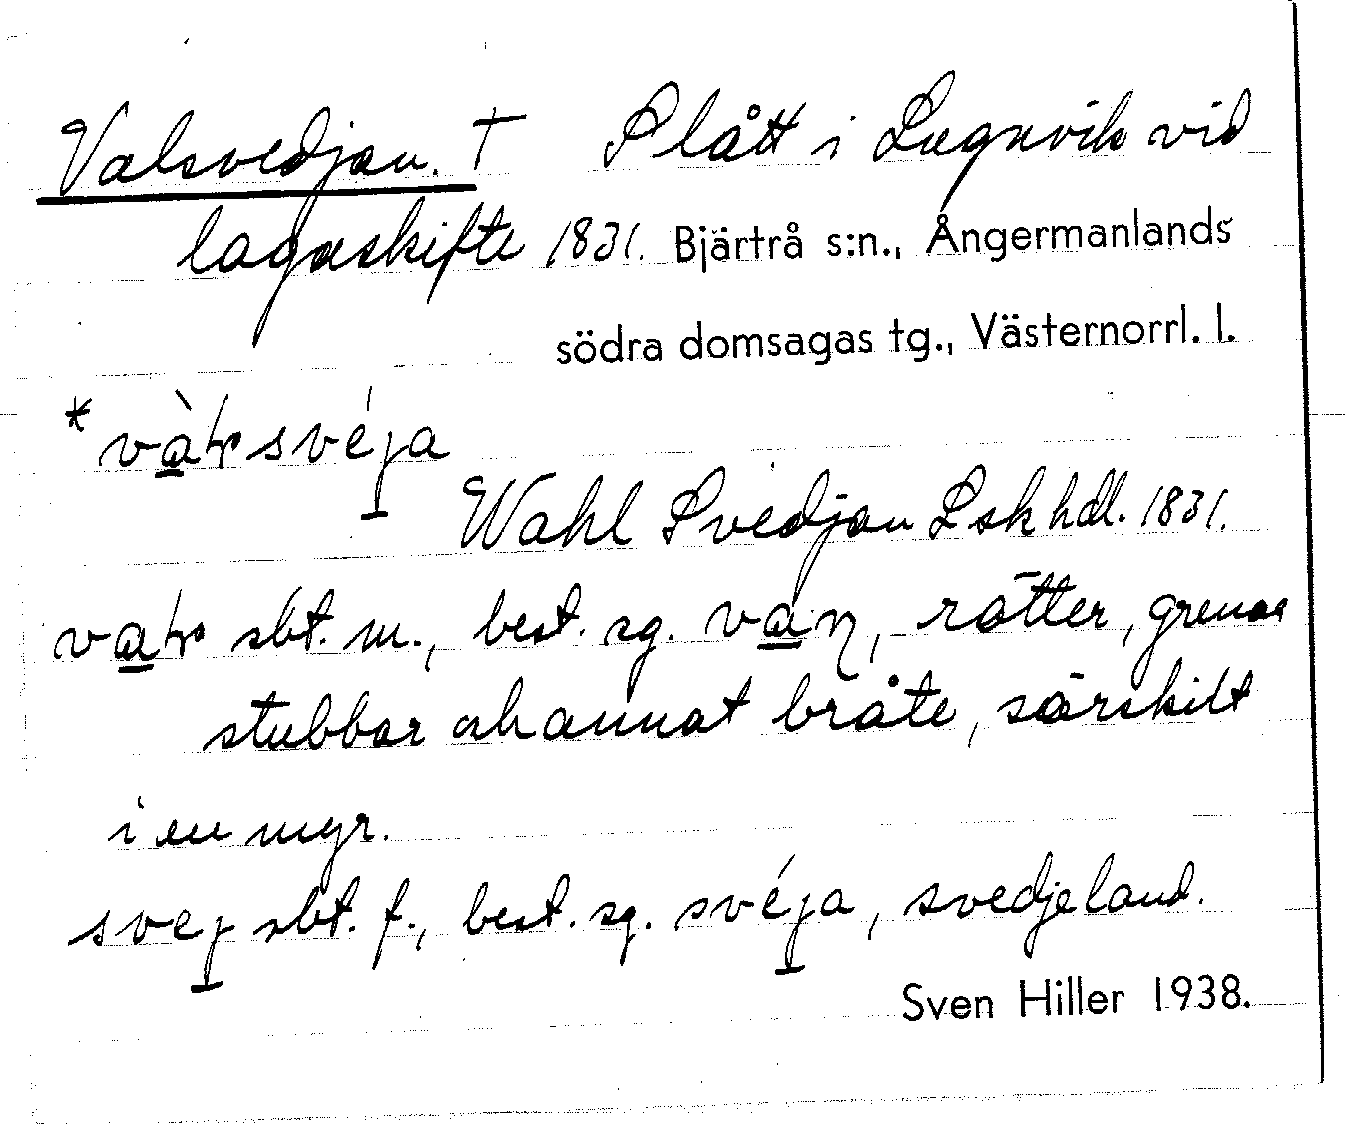 Valsvedjan. † Slått i Lugnvik vid
lagaskifte 1831. Bjärtrå s:n., Ångermanlands
södra domsagas tg., Västernorrl. l.
Wahl Svedjan Lsk hdl. 1831.
sbt. m., best. sg. rötter, grenar
stubbar och annat bråte, särskilt
i en myr.
svej sbt. f., best. sg. svéja, svedjeland.
Sven Hiller 1938.